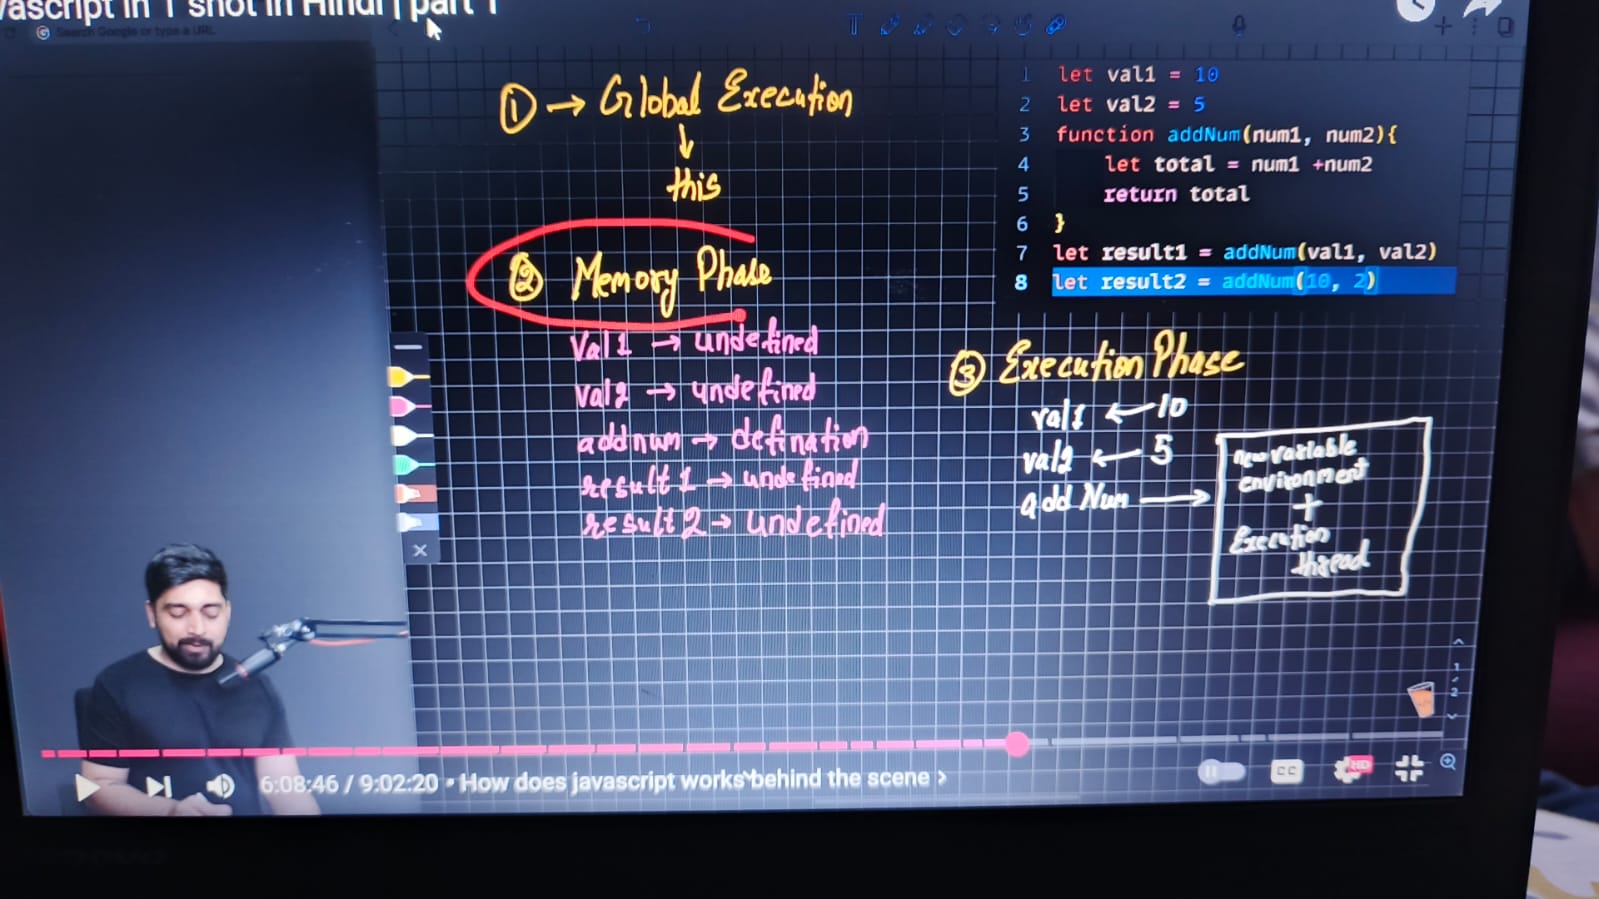 vascript in 1 shot in Hindi | part 1
Search Google or type a URL
① → Global Execution
↓
this
② Memory Phase
Val1 → undefined
val2 → undefined
addnum → defination
result1 → undefined
result2 → undefined
1 let val1 = 10
2 let val2 = 5
3 function addNum(num1, num2){
4 let total = num1 +num2
5 return total
6 }
7 let result1 = addNum(val1, val2)
8 let result2 = addNum(10, 2)
③ Execution Phase
val1 ← 10
val2 ← 5
add Num →
new variable
environment
+
Execution
thread
1
2
6:08:46 / 9:02:20 • How does javascript works behind the scene >
CC
HD